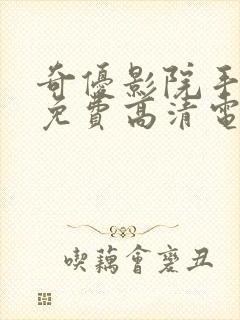 奇優影院手
免費高清電
喫藕會變丑